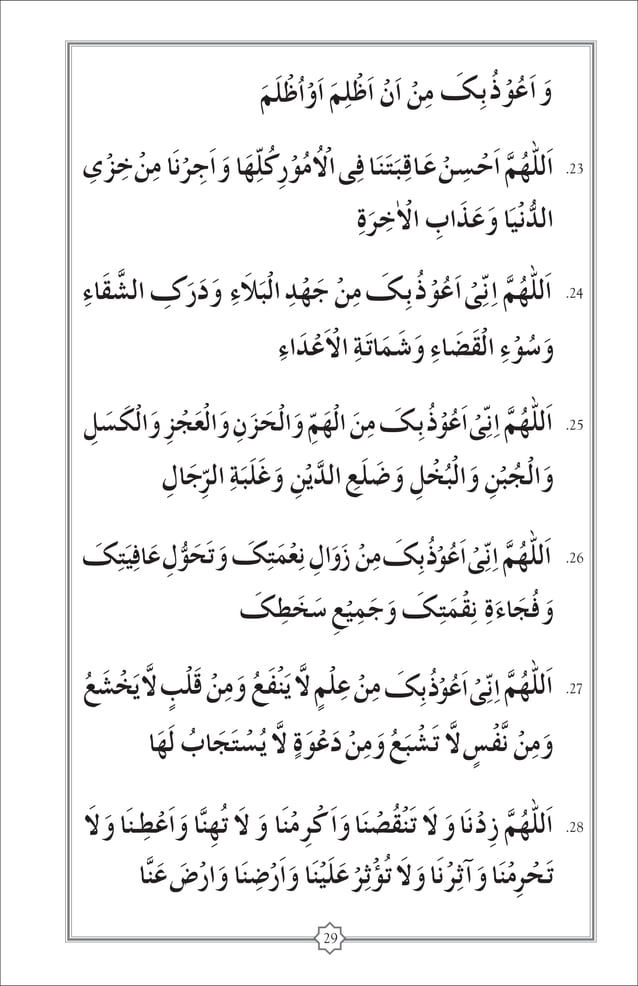 وَ اَعُوْذُبِکَ مِنْ اَنْ اَظْلِمَ اَوْاُظْلَمَ
23. اَللّٰهُمَّ اَحْسِنْ عَاقِبَتَنَا فِی الْاُمُوْرِ كُلِّهَا وَ اَجِرْنَا مِنْ خِزْیِ
الدُّنْیَا وَعَذَابِ الْاٰخِرَةِ
24. اَللّٰهُمَّ اِنِّیْ اَعُوْذُبِکَ مِنْ جَهْدِ الْبَلَاَءِ وَ دَرَکِ الشَّقَاءِ
وَسُوْءِ الْقَضَاءِ وَشَمَاتَةِ الْاَعْدَاءِ
25. اَللّٰهُمَّ اِنِّیْ اَعُوْذُبِکَ مِنَ الْهَمِّ وَالْحَزَنِ وَالْعَجْزِ وَالْكَسَلِ
وَالْجُبْنِ وَالْبُخْلِ وَ ضَلَعِ الدَّيْنِ وَغَلَبَةِ الرِّجَالِ
26. اَللّٰهُمَّ اِنِّیْ اَعُوْذُبِکَ مِنْ زَوَالِ نِعْمَتِکَ وَ تَحَوُّلِ عَافِیَتِکَ
وَ فُجَاءَةِ نِقْمَتِکَ وَجَمِیْعِ سَخَطِکَ
27. اَللّٰهُمَّ اِنِّیْ اَعُوْذُبِکَ مِنْ عِلْمٍ لَّا یَنْفَعُ وَمِنْ قَلْبٍ لَّا یَخْشَعُ
وَمِنْ نَّفْسٍ لَّا تَشْبَعُ وَمِنْ دَعْوَةٍ لَّا یُسْتَجَابُ لَهَا
28. اَللّٰهُمَّ زِدْنَا وَ لَا تَنْقُصْنَا وَاَكْرِمْنَا وَ لَا تُهِنَّا وَاَعْطِنَا وَلَا
تَحْرِمْنَا وَ آثِرْنَا وَلَا تُؤْثِرْ عَلَیْنَا وَاَرْضِنَا وَارْضَ عَنَّا
29